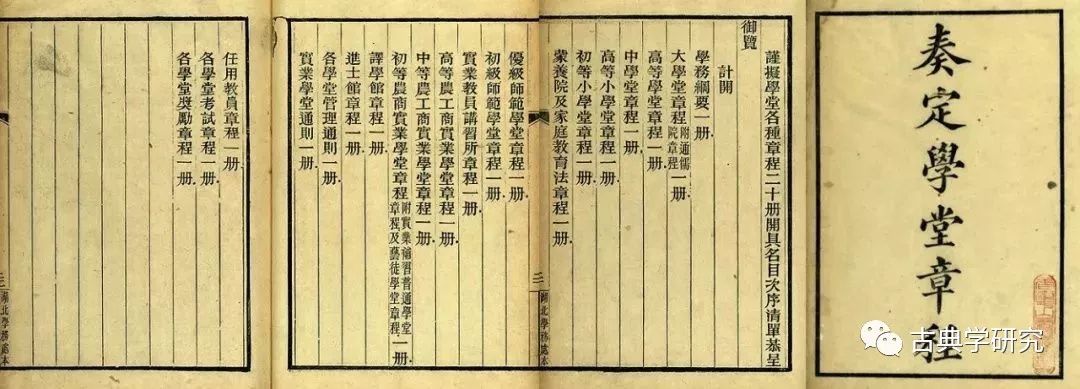 奏定學堂章程
謹擬學堂各種章程二十册開具名目次序清單恭呈
御覽
計開
學務綱要一册
大學堂章程附通儒院章程一册
高等學堂章程一册
中學堂章程一册
高等小學堂章程一册
初等小學堂章程一册
蒙養院及家庭教育法章程一册
優級師範學堂章程一册
初級師範學堂章程一册
實業教員講習所章程一册
高等農工商實業學堂章程一册
中等農工商實業學堂章程一册
初等農商實業學堂章程附實業補習普通學堂章程及藝徒學堂章程一册
譯學館章程一册
進士館章程一册
各學堂管理通則一册
實業學堂通則一册
任用教員章程一册
各學堂考試章程一册
各學堂獎勵章程一册
二
湖北學務處本
三
湖北學務處本
古典学研究